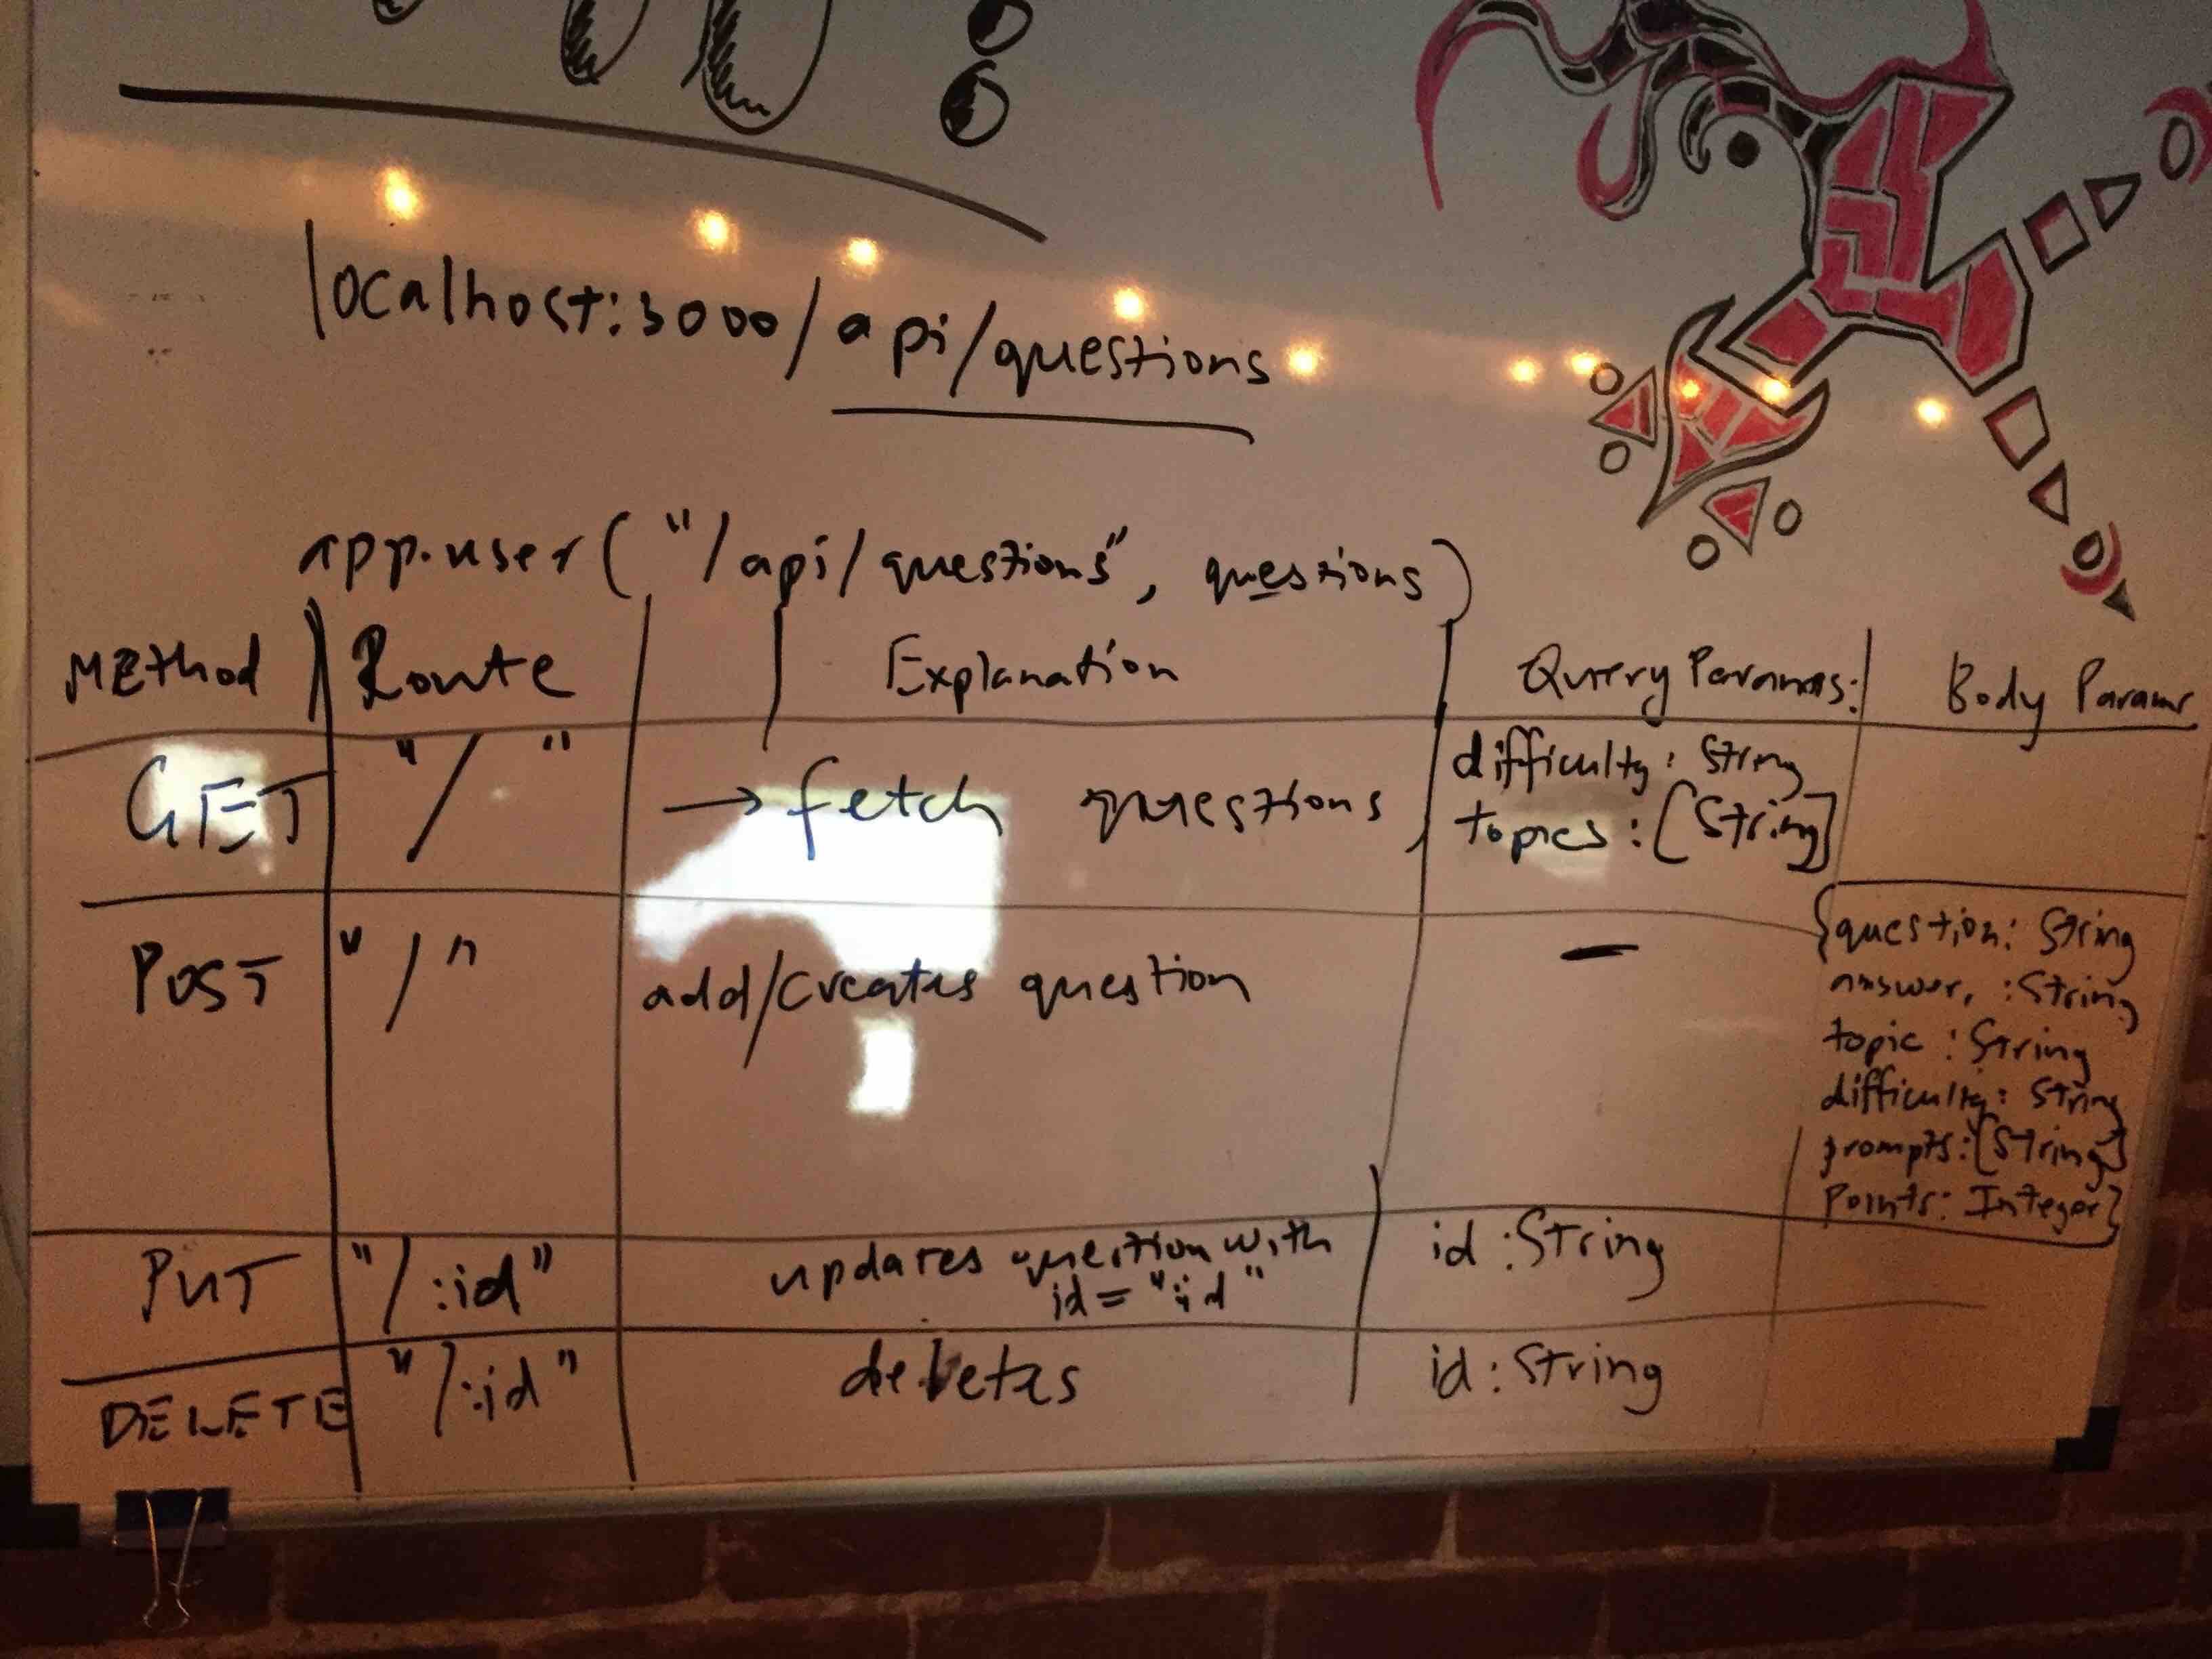 localhost:3000/api/questions
app.user("/api/questions", questions)
Method Route Explanation Query Params: Body Params
GET "/" → fetch questions, difficulty: String
topics: [String]
POST "/" add/creates question - {question: String
answer, : String
topic: String
difficulty: String
prompts: [String]
Points: Integer}
PUT "/:id" updates question with id: String
id = ":id"
DELETE "/:id" deletes id: String